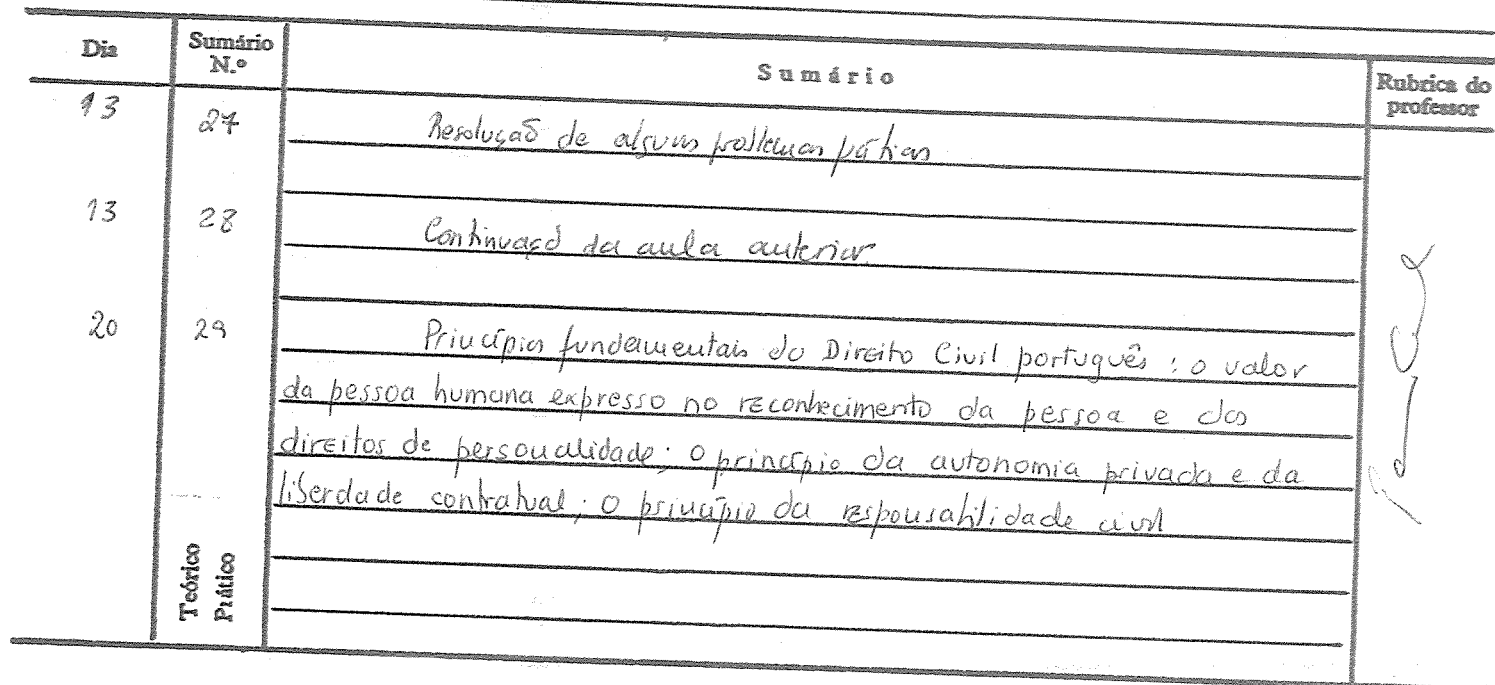 Dia Sumário N.º Sumário Rubrica do professor
13 27 Resolução de alguns problemas práticos
13 28 Continuação da aula anterior
20 29 Princípios fundamentais do Direito Civil português: o valor
da pessoa humana expresso no reconhecimento da pessoa e dos
direitos de personalidade; o princípio da autonomia privada e da
liberdade contratual; o princípio da responsabilidade civil
Teórico
Prático